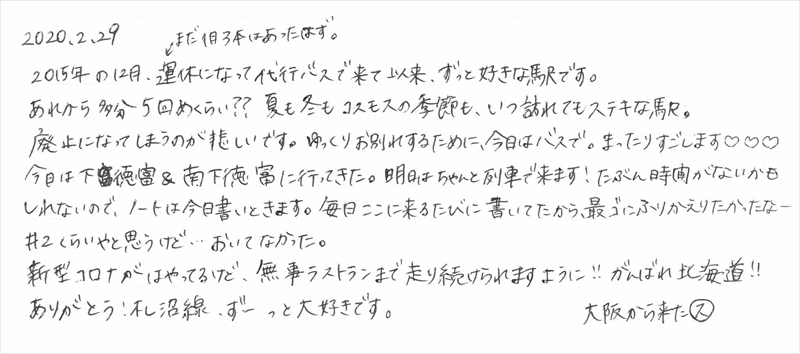 2020.2.29
まだ1日3本はあったはず。
2015年の12月、運休になって代行バスで来て以来、ずっと好きな駅です。
あれから多分5回めくらい?? 夏も冬もコスモスの季節も、いつ訪れてもステキな駅。
廃止になってしまうのが悲しいです。ゆっくりお別れするために、今日はバスで。まったりすごします♡♡♡
今日は下徳富&南下徳富に行ってきた。明日はちゃんと列車で来ます!たぶん時間がないかも
しれないので、ノートは今日書いときます。毎日ここに来るたびに書いてたから、最ゴにふりかえりたかったなー
#2くらいやと思うけど…おいてなかった。
新型コロナがはやってるけど、無事ラストランまで走り続けられますように!!がんばれ北海道!!
ありがとう!札沼線、ずーっと大好きです。
大阪から来たⓈ